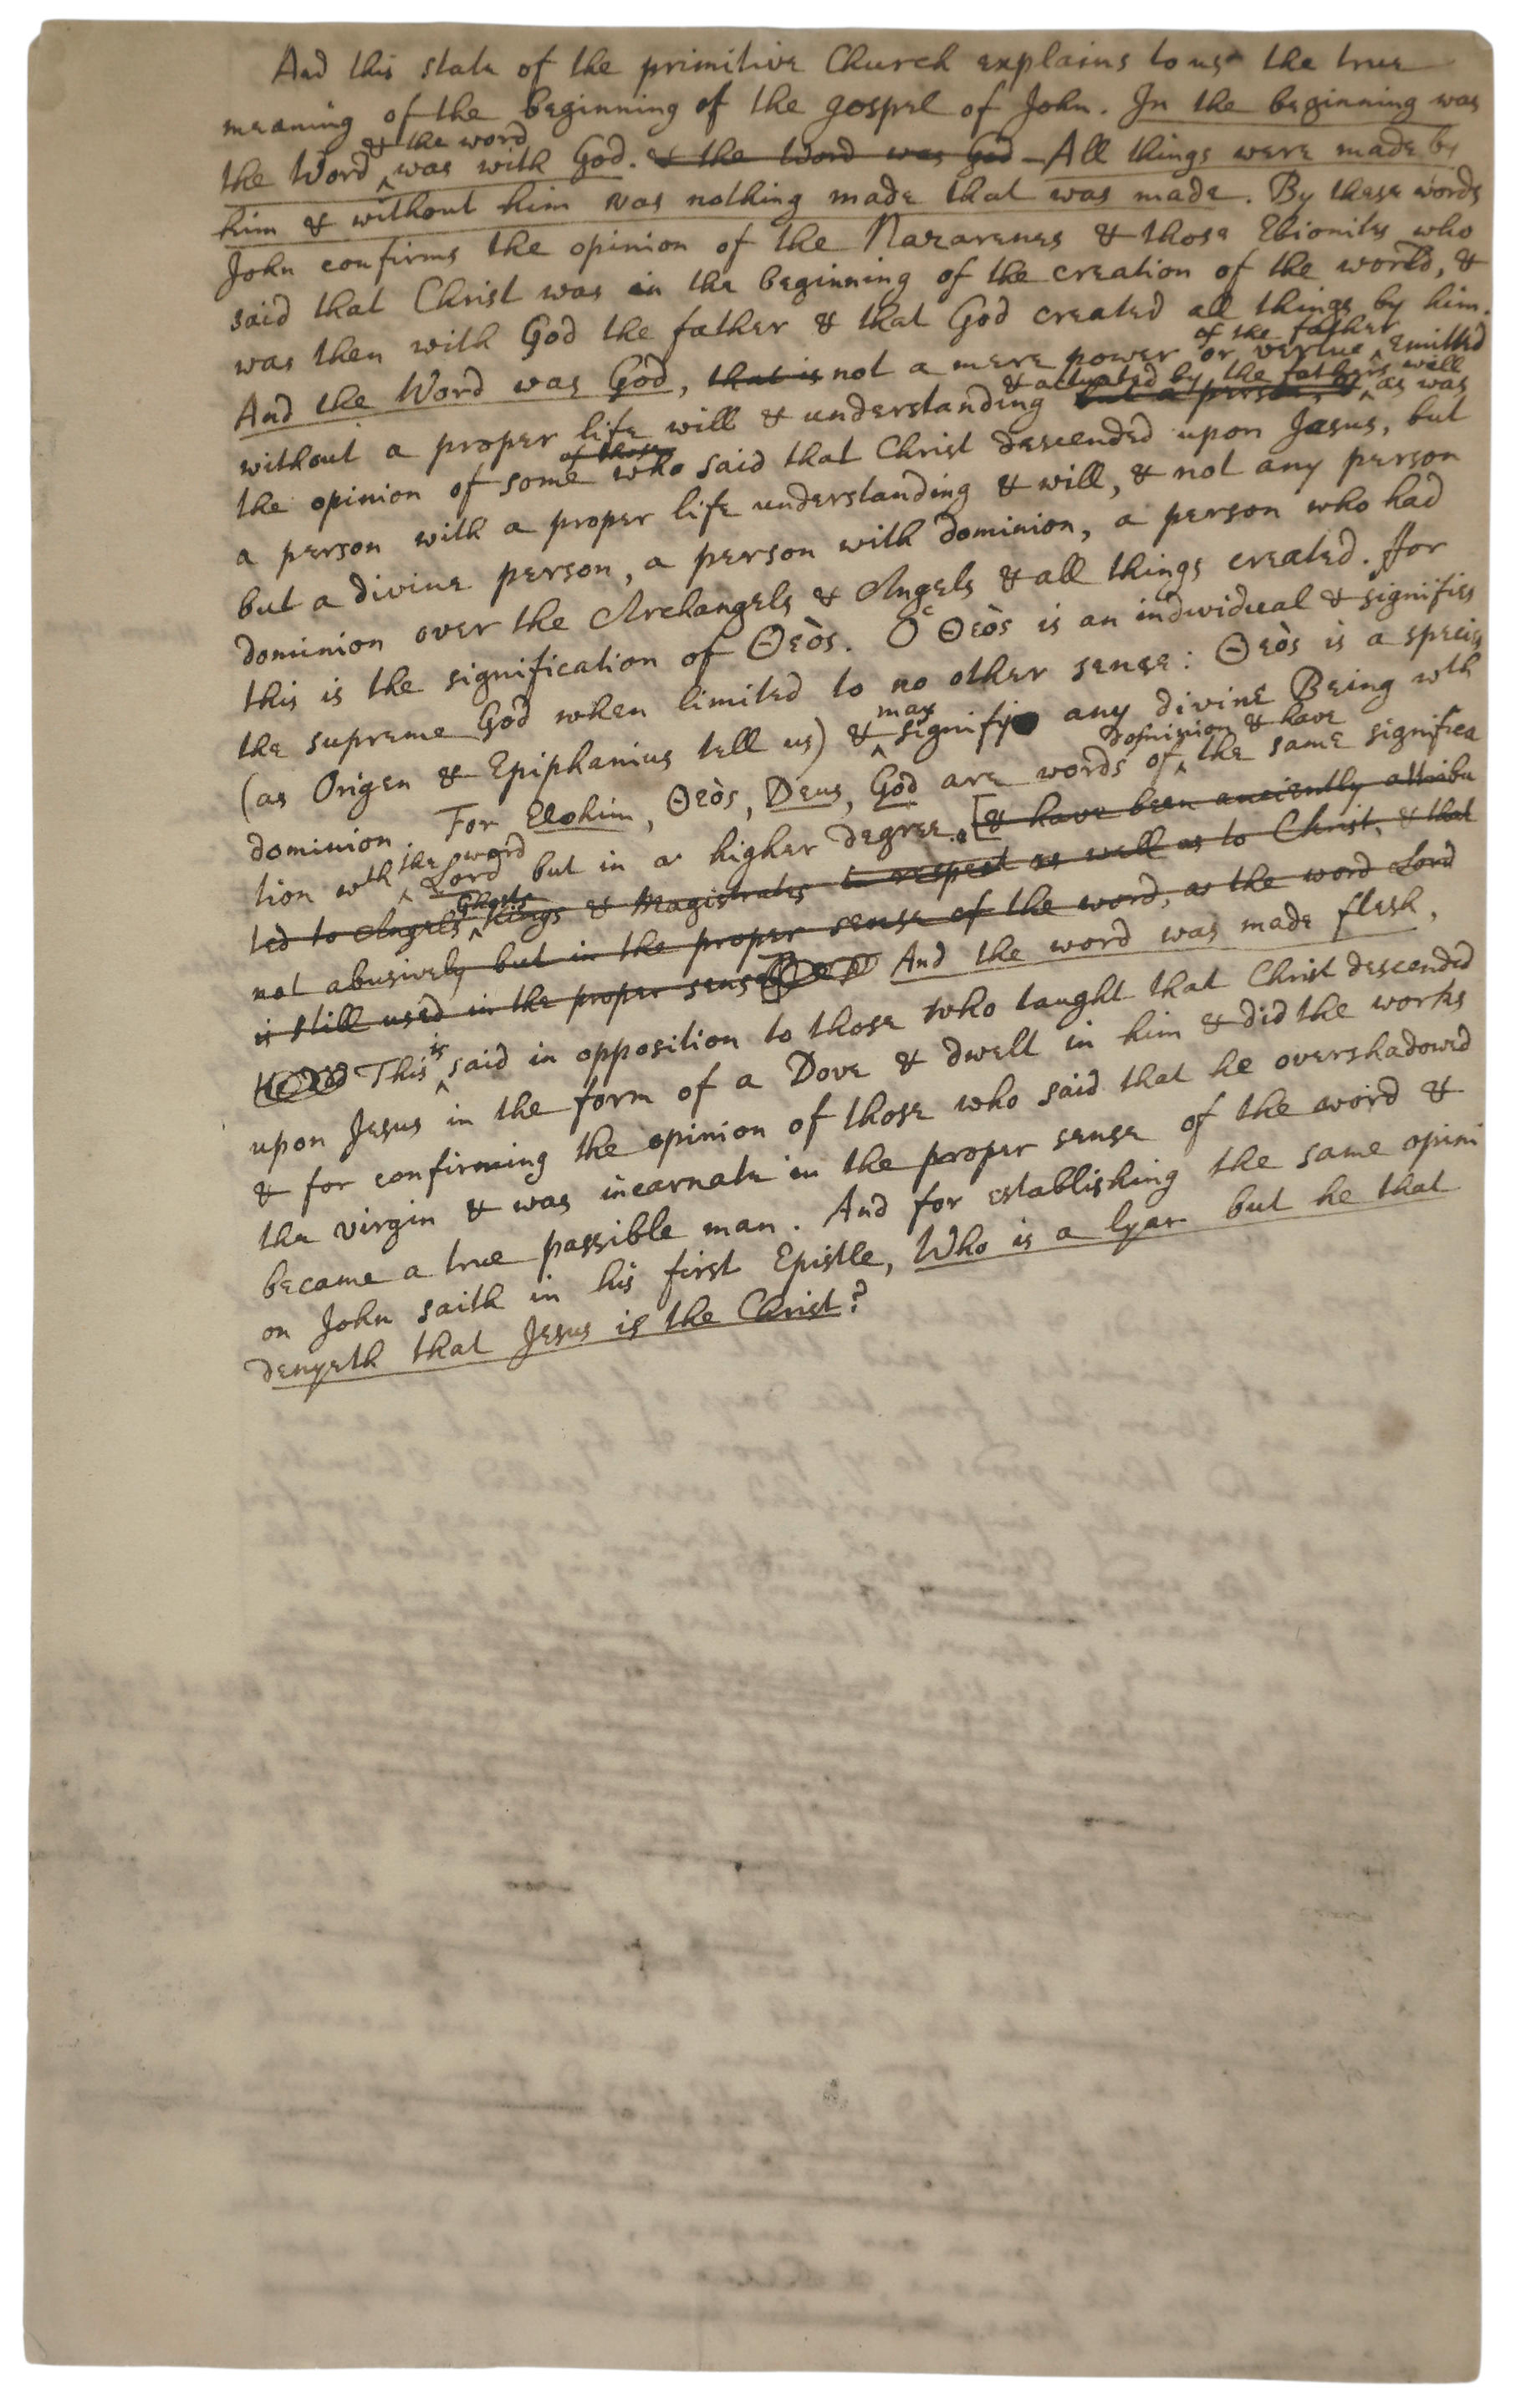 And this state of the primitive Church explains to us the true
meaning of the beginning of the gospel of John. In the beginning was
& the word
the Word was with God. & the Word was God — All things were made by
him & without him was nothing made that was made. By these words
John confirms the opinion of the Nazarenes & those Ebionites who
said that Christ was in the beginning of the creation of the world, &
was then with God the father & that God created all things by him.
of the father
And the Word was God, that is not a mere power or vertue emitted
& actuated by the fathers will
without a proper life will & understanding but a person, as was
of those
the opinion of some who said that Christ descended upon Jesus, but
a person with a proper life understanding & will, & not any person
but a divine person, a person with dominion, a person who had
dominion over the Archangels & Angels & all things created. For
this is the signification of Θεὸς. Ὁ Θεὸς is an individual & signifies
the supreme God when limited to no other sense: Θεὸς is a species
may
(as Origen & Epiphanius tell us) & signify any divine Being wth
dominion & have
dominion. For Elohim, Θεὸς, Deus, God are words of the same significa
the word
tion wth Lord but in a higher degree. [& have been anciently attribu
Ghosts
ted to Angels Kings & Magistrates in respect as well as to Christ, & that
not abusively but in the proper sense of the word, as the word Lord
is still used in the proper sense And the word was made flesh.
is
This said in opposition to those who taught that Christ descended
upon Jesus in the form of a Dove & dwelt in him & did the works
& for confirming the opinion of those who said that he overshadowed
the virgin & was incarnate in the proper sense of the word &
became a true passible man. And for establishing the same opini
on John saith in his first Epistle, Who is a lyar but he that
denyeth that Jesus is the Christ?